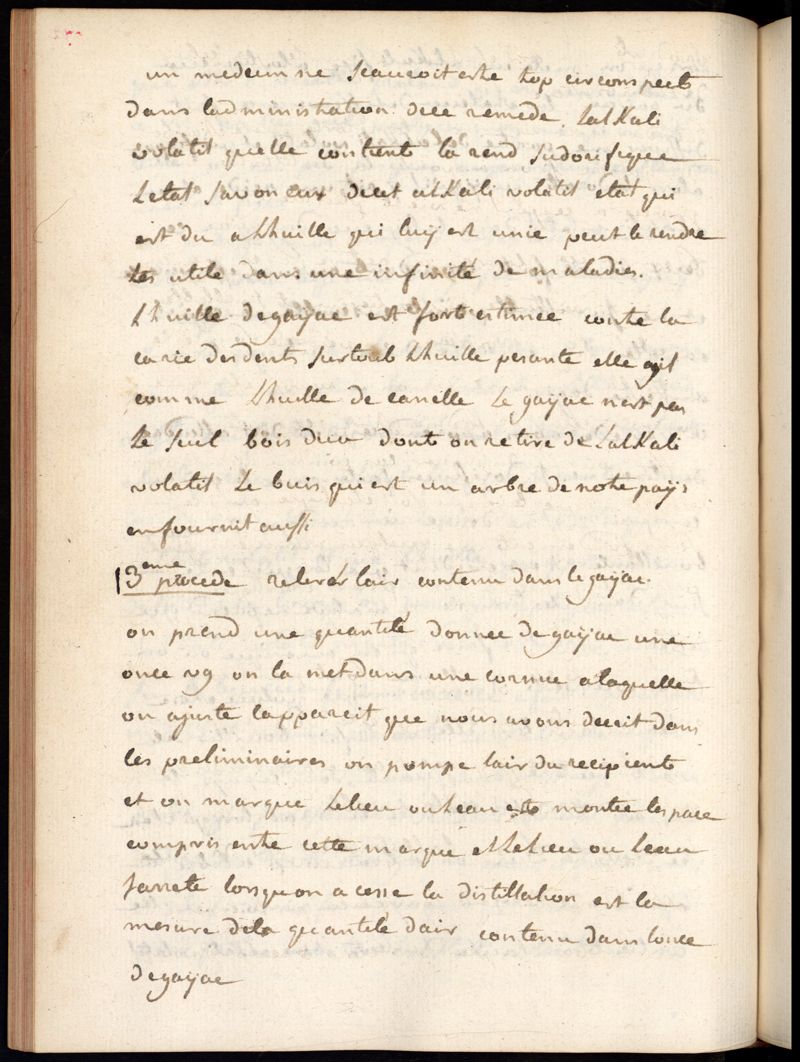 un medecin ne scauroit estre trop circonspect
dans ladministration dece remede. Lalkali
volatil quelle contient la rend sudorifique
Letat savoneux decet alkali volatil etat qui
est du a Lhuille qui luy est unie peut le rendre
tres utile dans une infinité de maladies.
Lhuille degayac est fort estimee contre la
carie desdents surtout Lhuille pesante elle agit
comme Lhuille de canelle Le gayac nest pas
Le seul bois dur dont on retire de Lalkali
volatil Le buis qui est un arbre de notre pays
enfournit aussi
3eme procede relever lair contenu dans legayac.
on prend une quantité donnee de gayac une
once vg on la met dans une cornue a laquelle
on ajuste lappareil que nous avons decrit dans
les preliminaires on pompe lair du recipient
et on marque Lelieu ou Leau est montée lespace
compris entre cette marque et Lelieu ou Leau
sarrete lorsquon a cessé la distillation est la
mesure dela quantité dair contenu dans lonce
de gayac